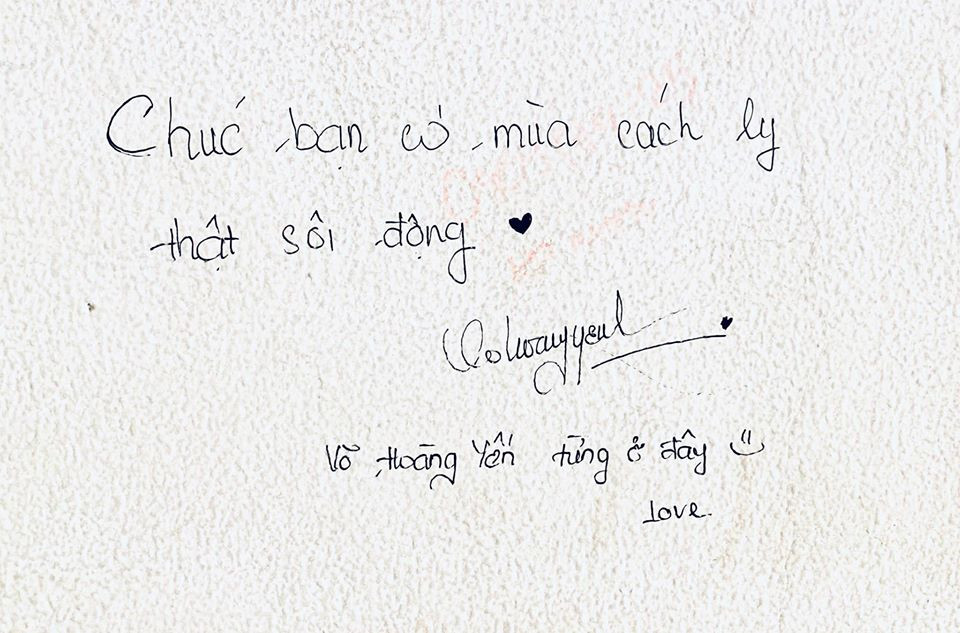 Chúc bạn có mùa cách ly
thật sôi động ♥
Vohoangyen
Võ Hoàng Yến từng ở đây =)
Love.